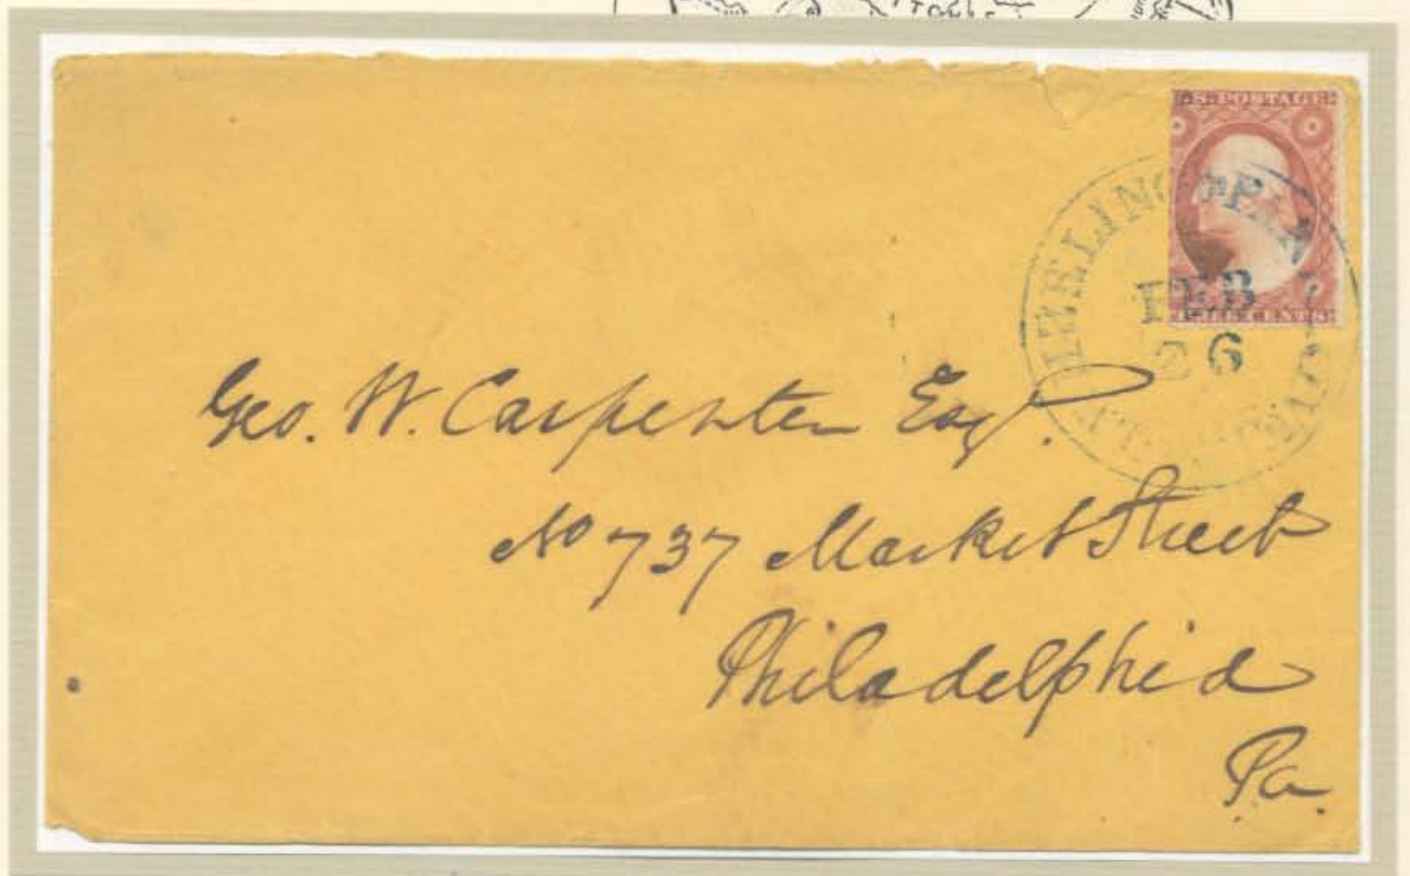 U.S. POSTAGE
FEB
26
Geo. W. Carpenter Esq.
No 737 Market Street
Philadelphia
Pa.